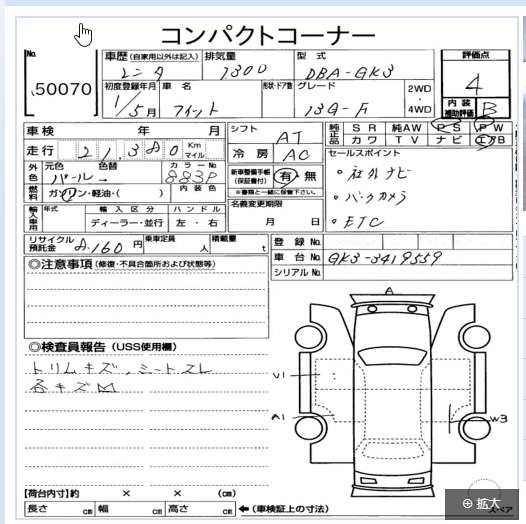 コンパクトコーナー
No. 50070
車歴 (自家用以外は記入) レンタ
排気量 1300
型式 DBA-GK3
評価点 4
初度登録年月 1/5月
車名 フィット
形状・ドア数
グレード 13G-F
2WD
4WD
内装補助評価 B
車検 年 月
走行 21,380 Km マイル
シフト AT
冷房 AC
純正品 SR 純AW PS PW
カワ TV ナビ エアB
外色 元色 パール 色替 →
カラーNo.
内装色
燃料 ガソリン・軽油・( )
新車整備手帳 (保証書付) 有・無
※書類と一緒に保管下さい。
セールスポイント
・社外ナビ
・バックカメラ
・ETC
輸入車用 年式 輸入区分 ディーラー・並行
ハンドル 左・右
名義変更期限 月 日
リサイクル預託金 8,160円
乗車定員 人
積載量 t
登録No.
車台No. GK3-3419559
シリアルNo.
◎注意事項 (修復・不具合箇所および状態等)
◎検査員報告 (USS使用欄)
トリムキズ、シートスレ
各キズ凹
A
U1
A1
W3
スペア
【荷台内寸】約 × × (cm)
長さ cm 幅 cm 高さ cm ←(車検証上の寸法)
⊕ 拡大